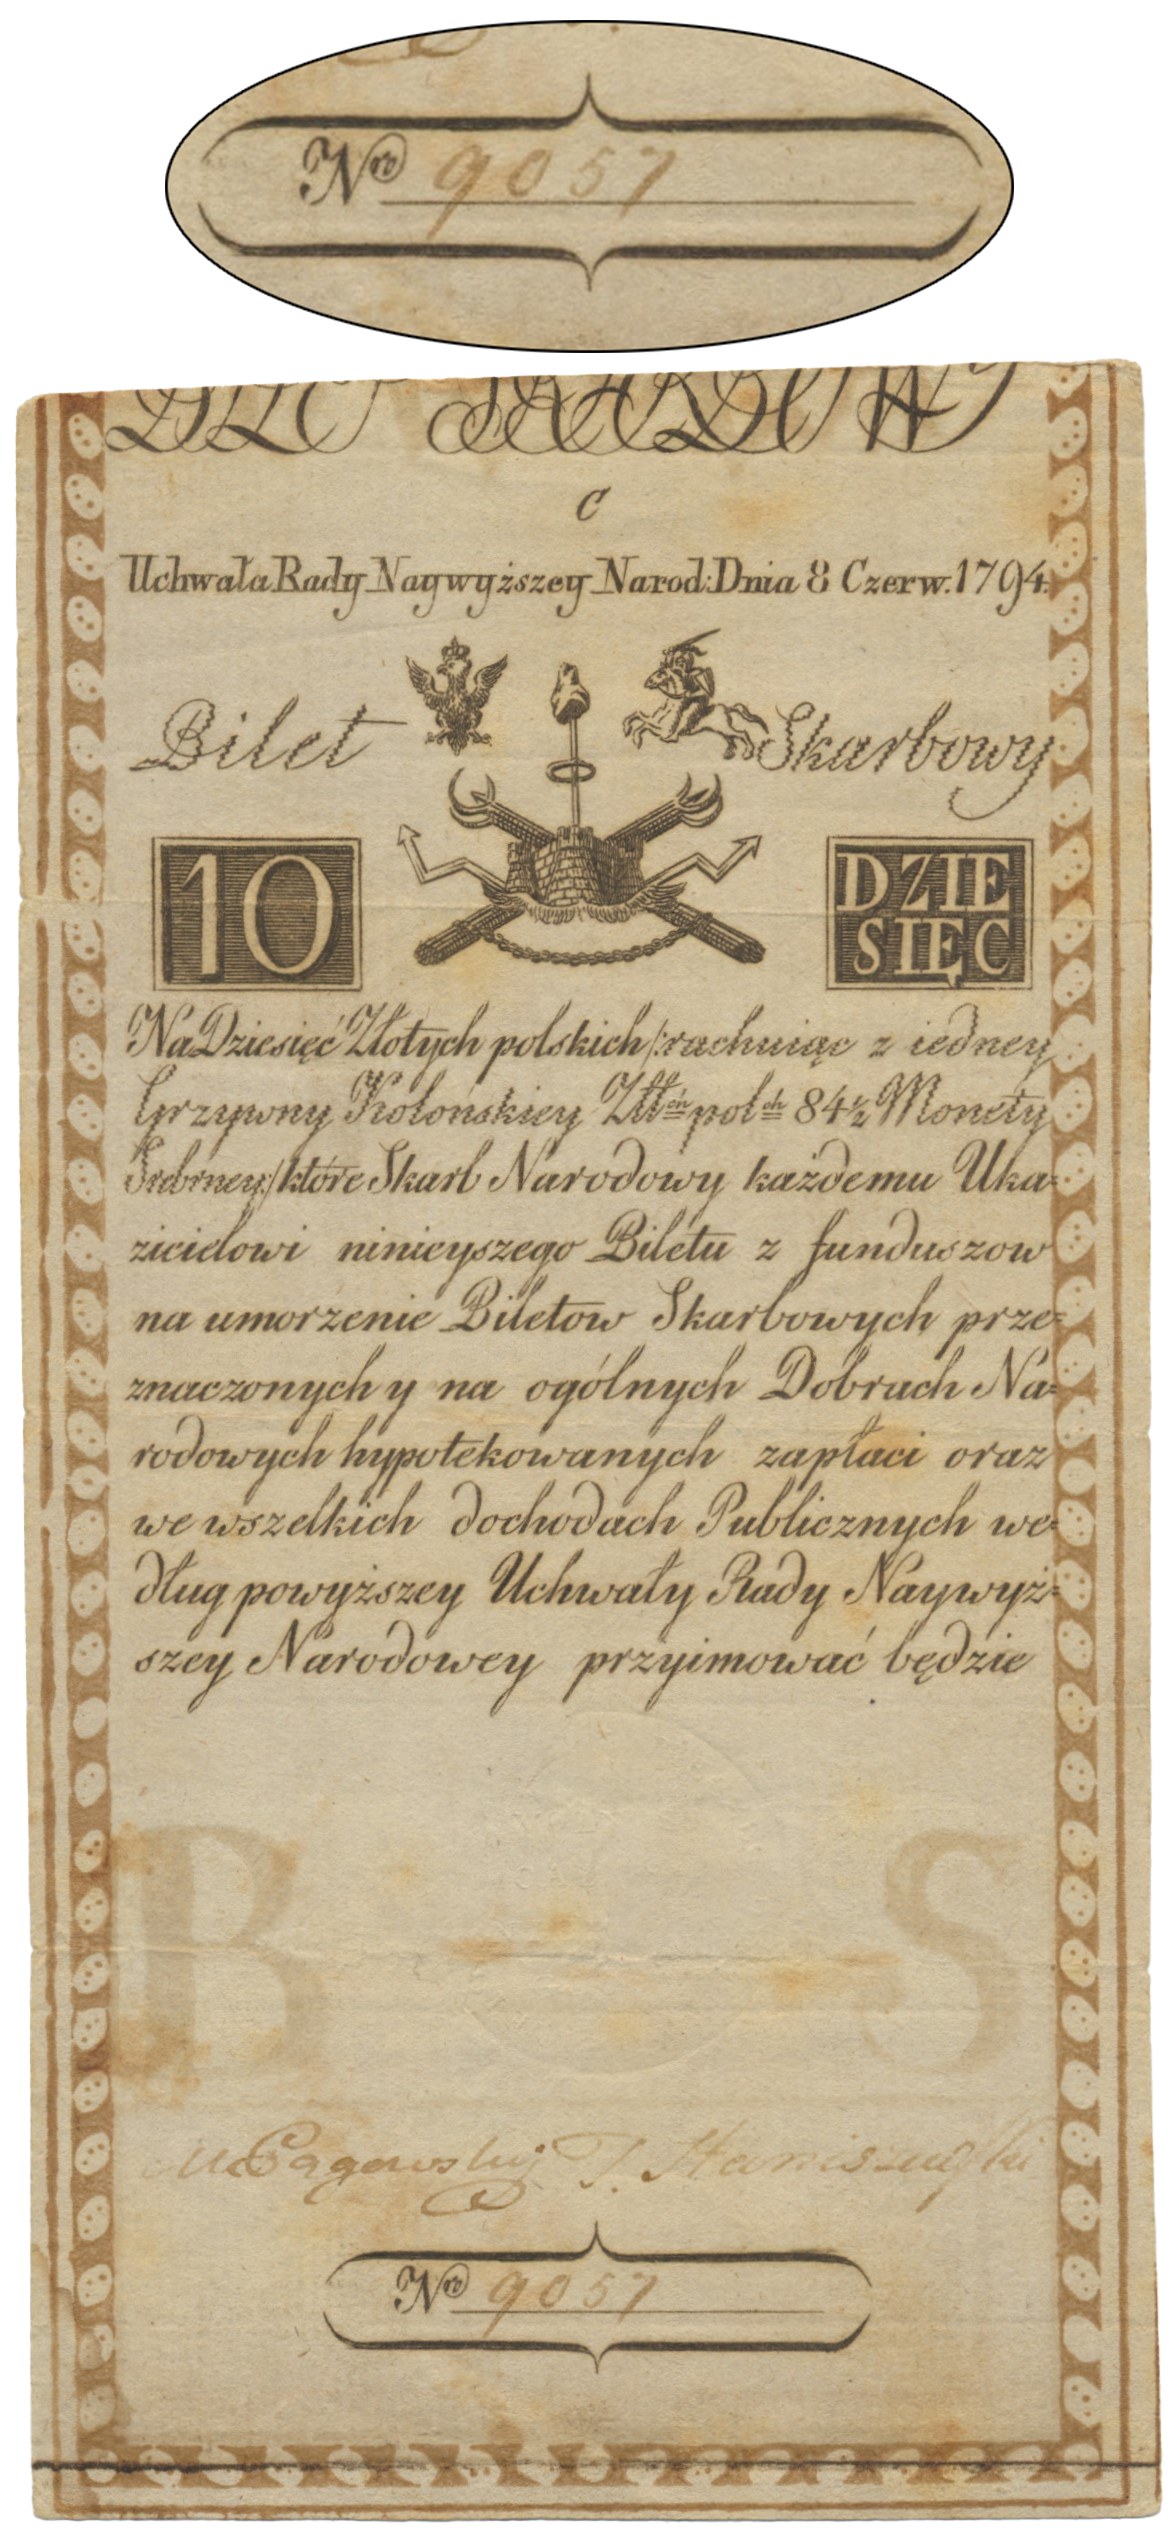 Nro 9057
BILET SKARBOWY
C
Uchwała Rady Naywyższey Narod: Dnia 8 Czerw. 1794.
Bilet Skarbowy
10 DZIE
SIĘC
Na Dziesięć Złotych polskich /: rachuiąc z iedney
Grzywny Kolońskiey Złł:ch pol:ch 84½ Monety
Srebrney :/ które Skarb Narodowy każdemu Uka=
zicielowi ninieyszego Biletu z funduszow
na umorzenie Biletow Skarbowych prze=
znaczonych y na ogólnych Dobrach Na=
rodowych hypotekowanych zapłaci oraz
we wszelkich dochodach Publicznych we=
dług powyższey Uchwały Rady Naywyż=
szey Narodowey przyimować będzie
B S
M Pągowski T. Staniszewski
Nro 9057